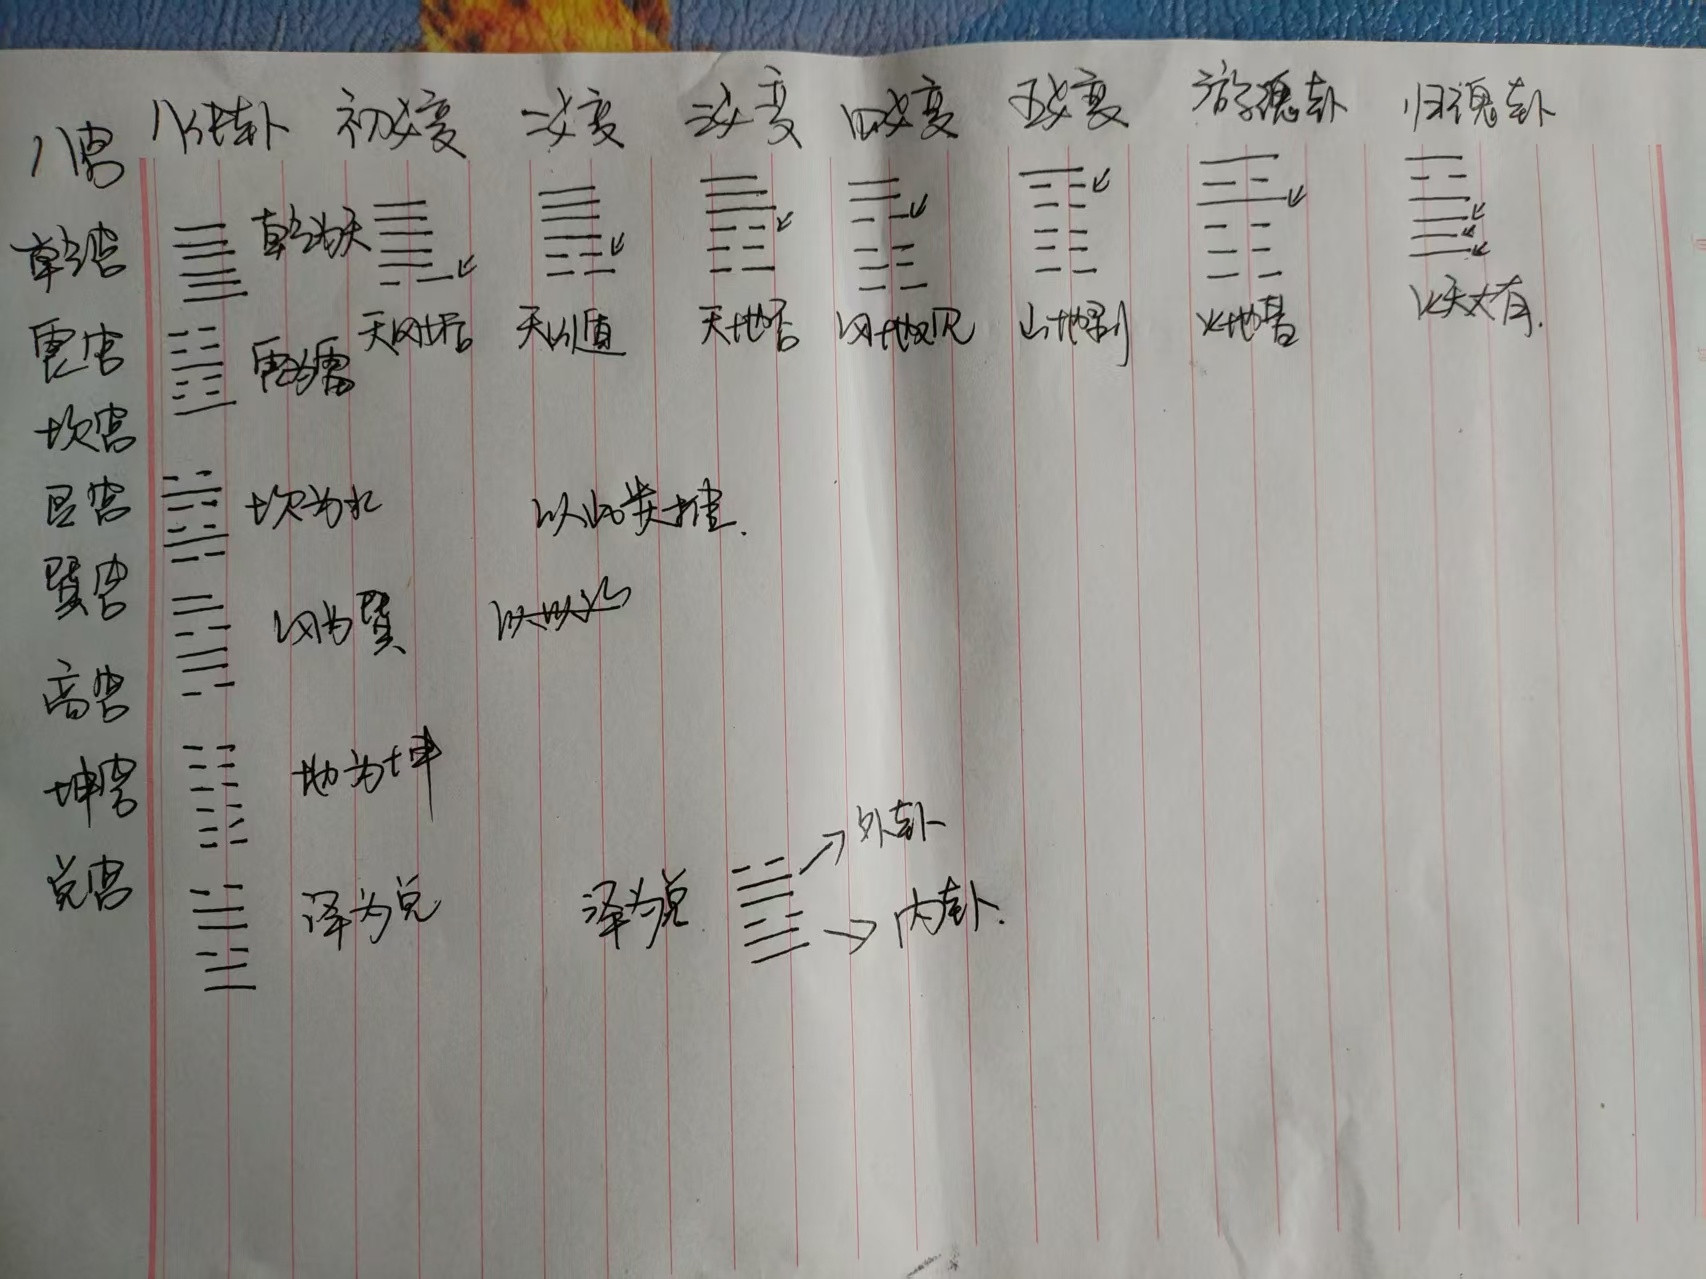 八宫 八纯卦 初爻变 二爻变 三爻变 四爻变 五爻变 游魂卦 归魂卦
乾宫 乾为天
天风姤 天山遁 天地否 风地观 山地剥 火地晋 火天大有.
震宫 震为雷
坎宫
艮宫 坎为水 以此类推.
巽宫 风为巽
离宫
坤宫 地为坤
外卦
兑宫 泽为兑 泽为兑 内卦.